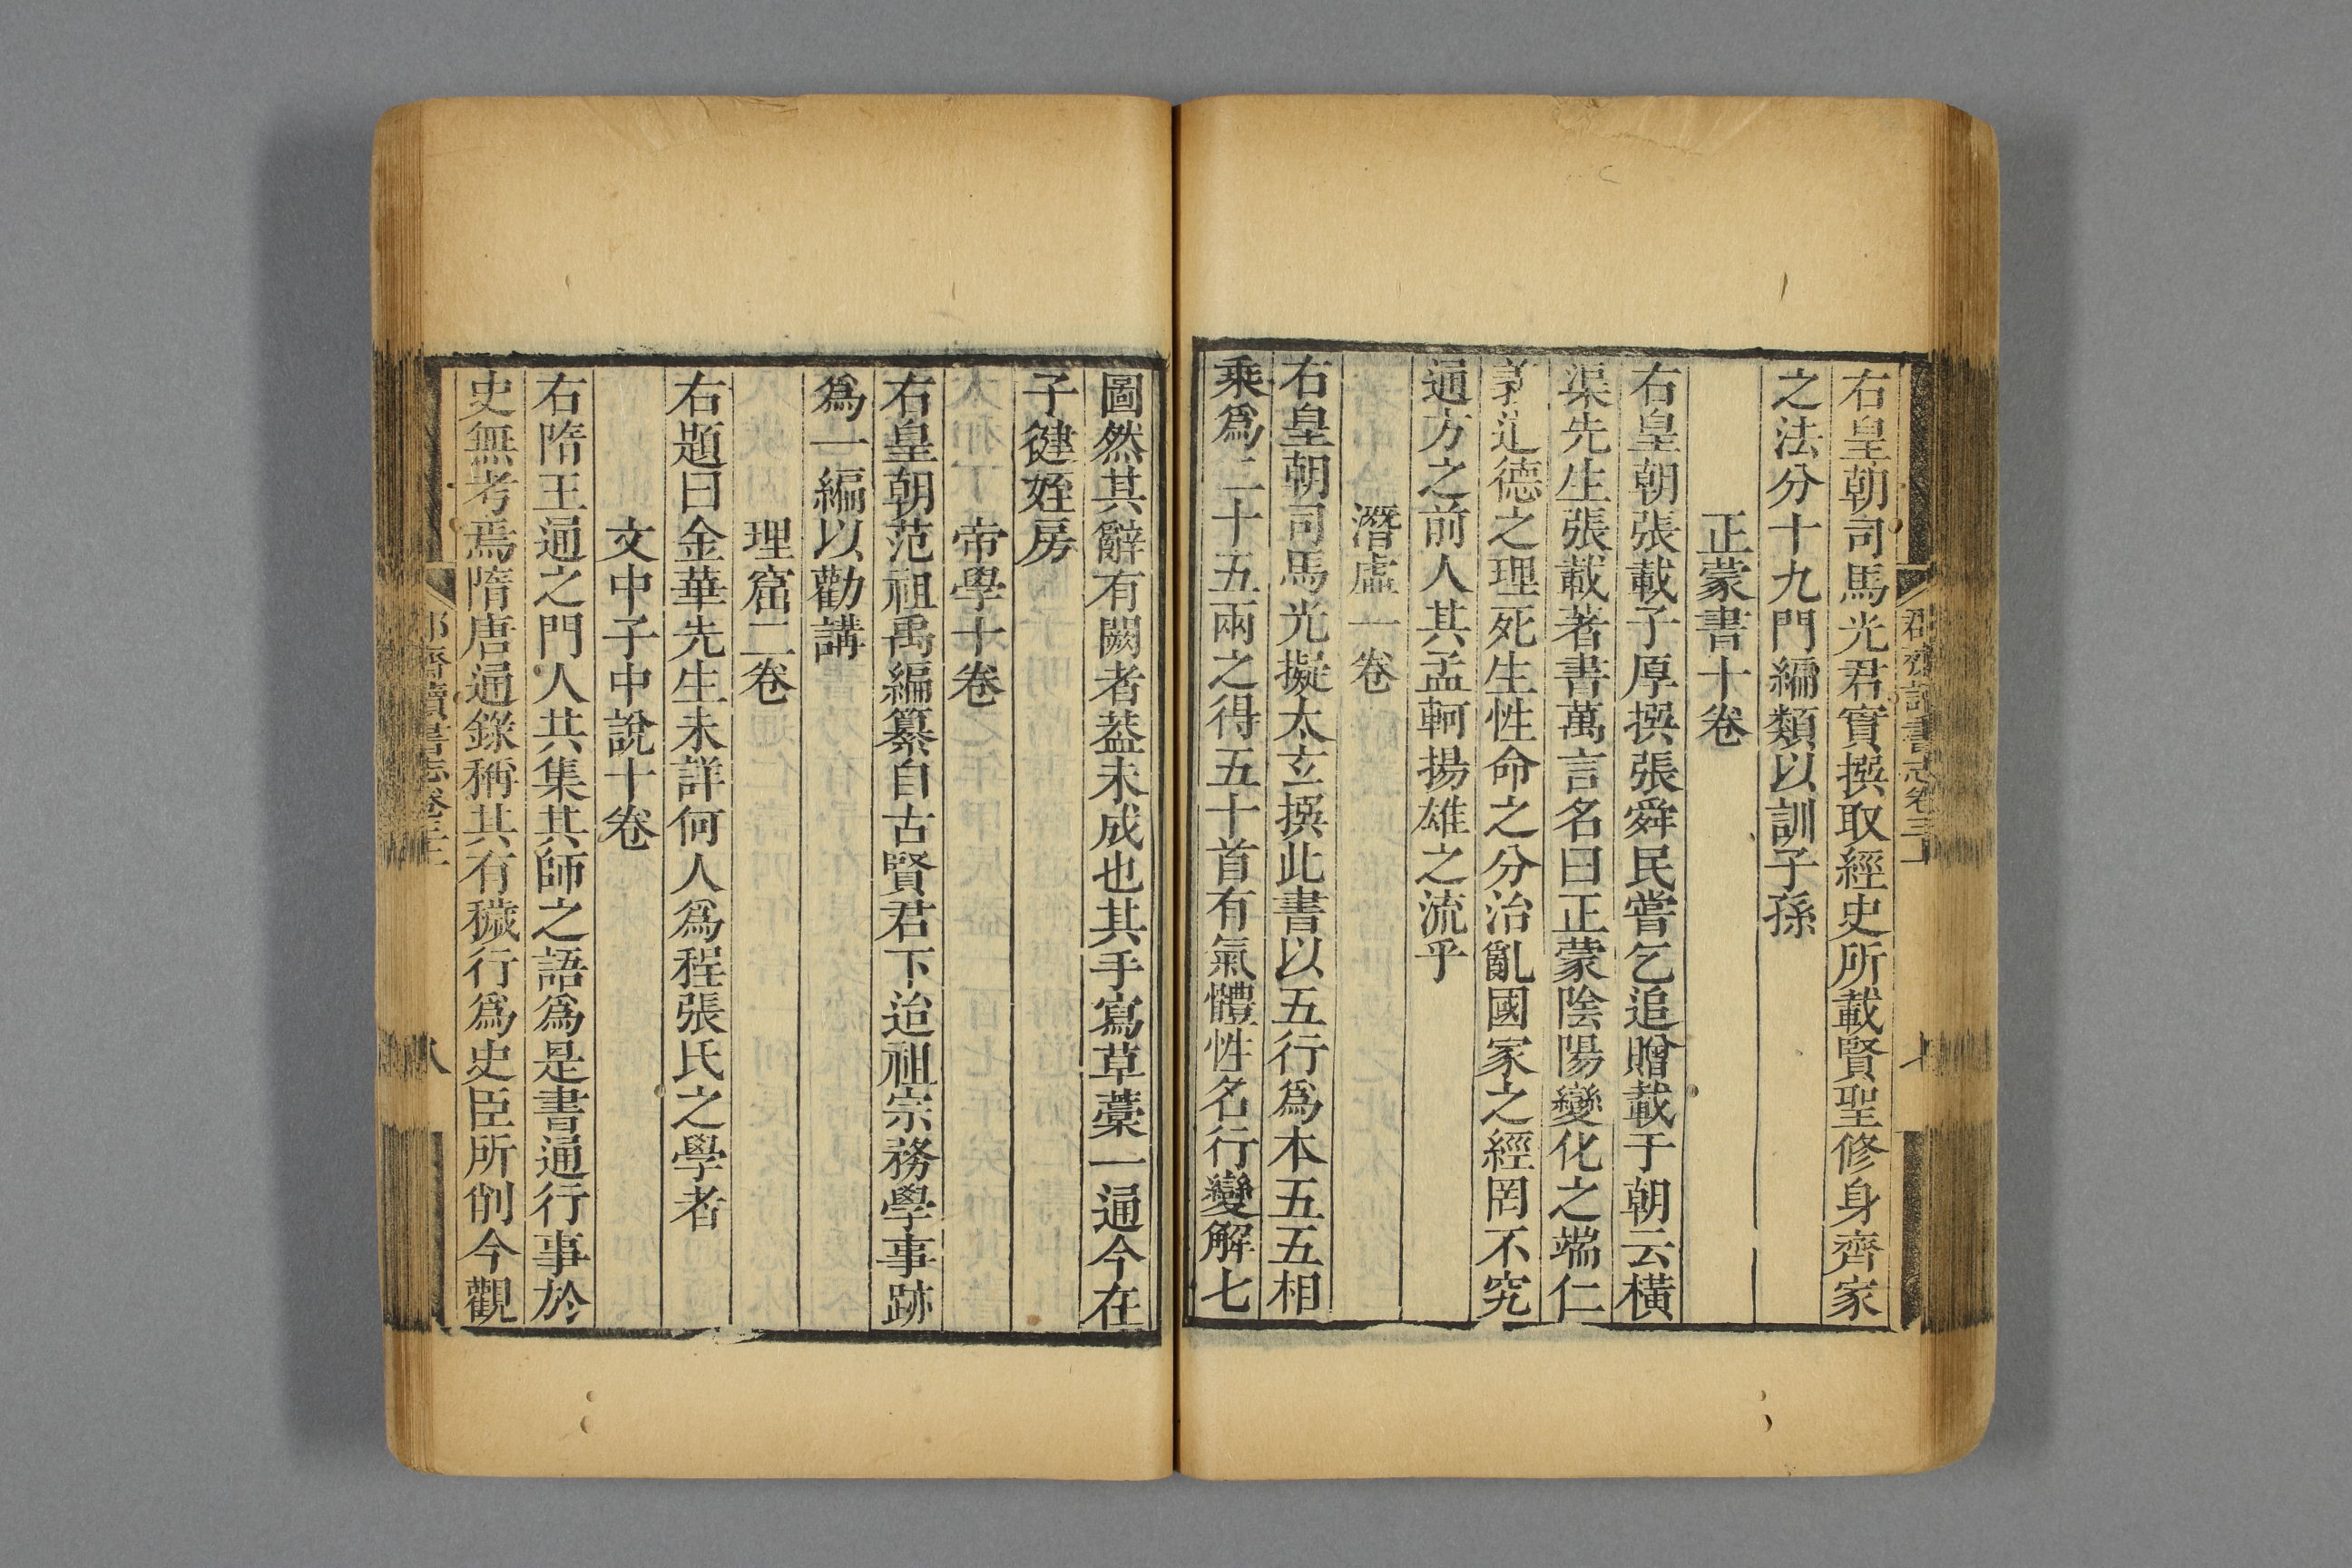 右皇朝司馬光君實撰取經史所載賢聖修身齊家
之法分十九門編類以訓子孫
正蒙書十卷
右皇朝張載子厚撰張舜民嘗乞追贈載于朝云橫
渠先生張載著書萬言名曰正蒙陰陽變化之端仁
義道德之理死生性命之分治亂國家之經罔不究
通方之前人其孟軻揚雄之流乎
潛虛一卷
右皇朝司馬光擬太玄撰此書以五行爲本五五相
乘爲二十五兩之得五十首有氣體性名行變解七
圖然其辭有闕者葢未成也其手寫草藁一通今在
子健姪房
帝學十卷
右皇朝范祖禹編纂自古賢君下迨祖宗務學事跡
爲一編以勸講
理窟二卷
右題曰金華先生未詳何人爲程張氏之學者
文中子中說十卷
右隋王通之門人共集其師之語爲是書通行事於
史無考焉隋唐通錄稱其有穢行爲史臣所削今觀
郡齋讀書志卷三上
八